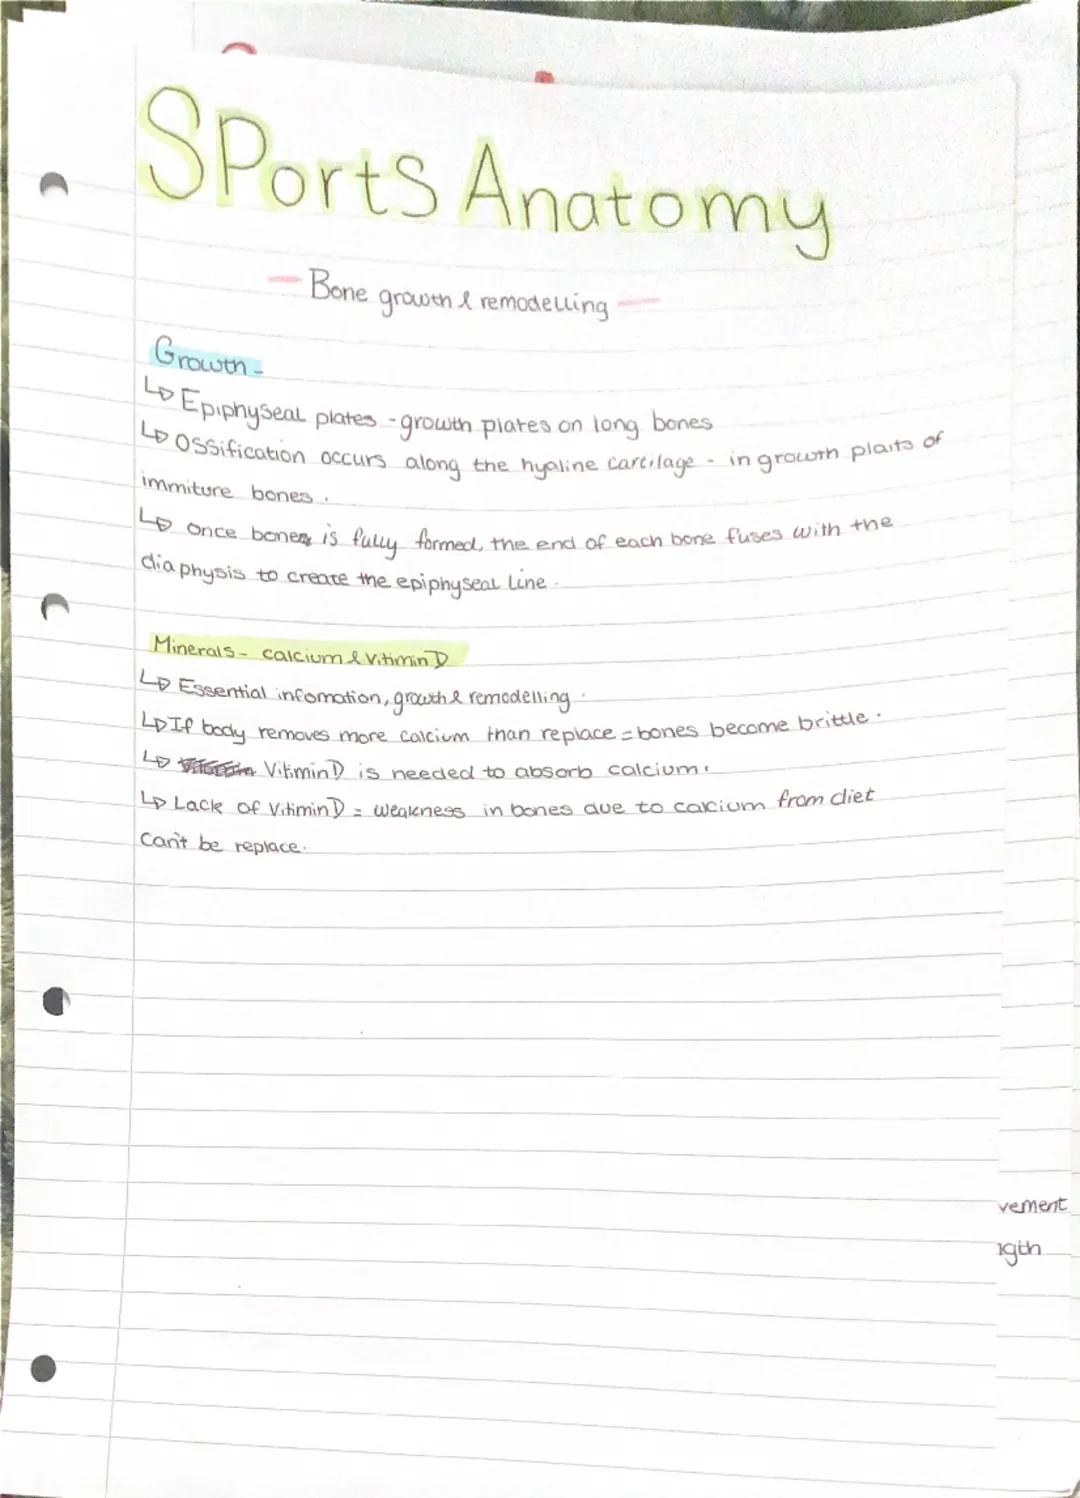 SPorts Anatomy
- Bone growth & remodelling -
Growth -
↳ Epiphyseal plates - growth plates on long bones
↳ Ossification occurs along the hyaline cartilage - in growth plaits of
immiture bones.
↳ once bones is fully formed, the end of each bone fuses with the
diaphysis to create the epiphyseal line.
Minerals - calcium & Vitimin D
↳ Essential infomation, growth & remodelling.
↳ If body removes more calcium than replace = bones become brittle.
↳ Vitimin D is needed to absorb calcium.
↳ Lack of Vitimin D = weakness in bones due to calcium from diet
Can't be replace.
vement
ngth